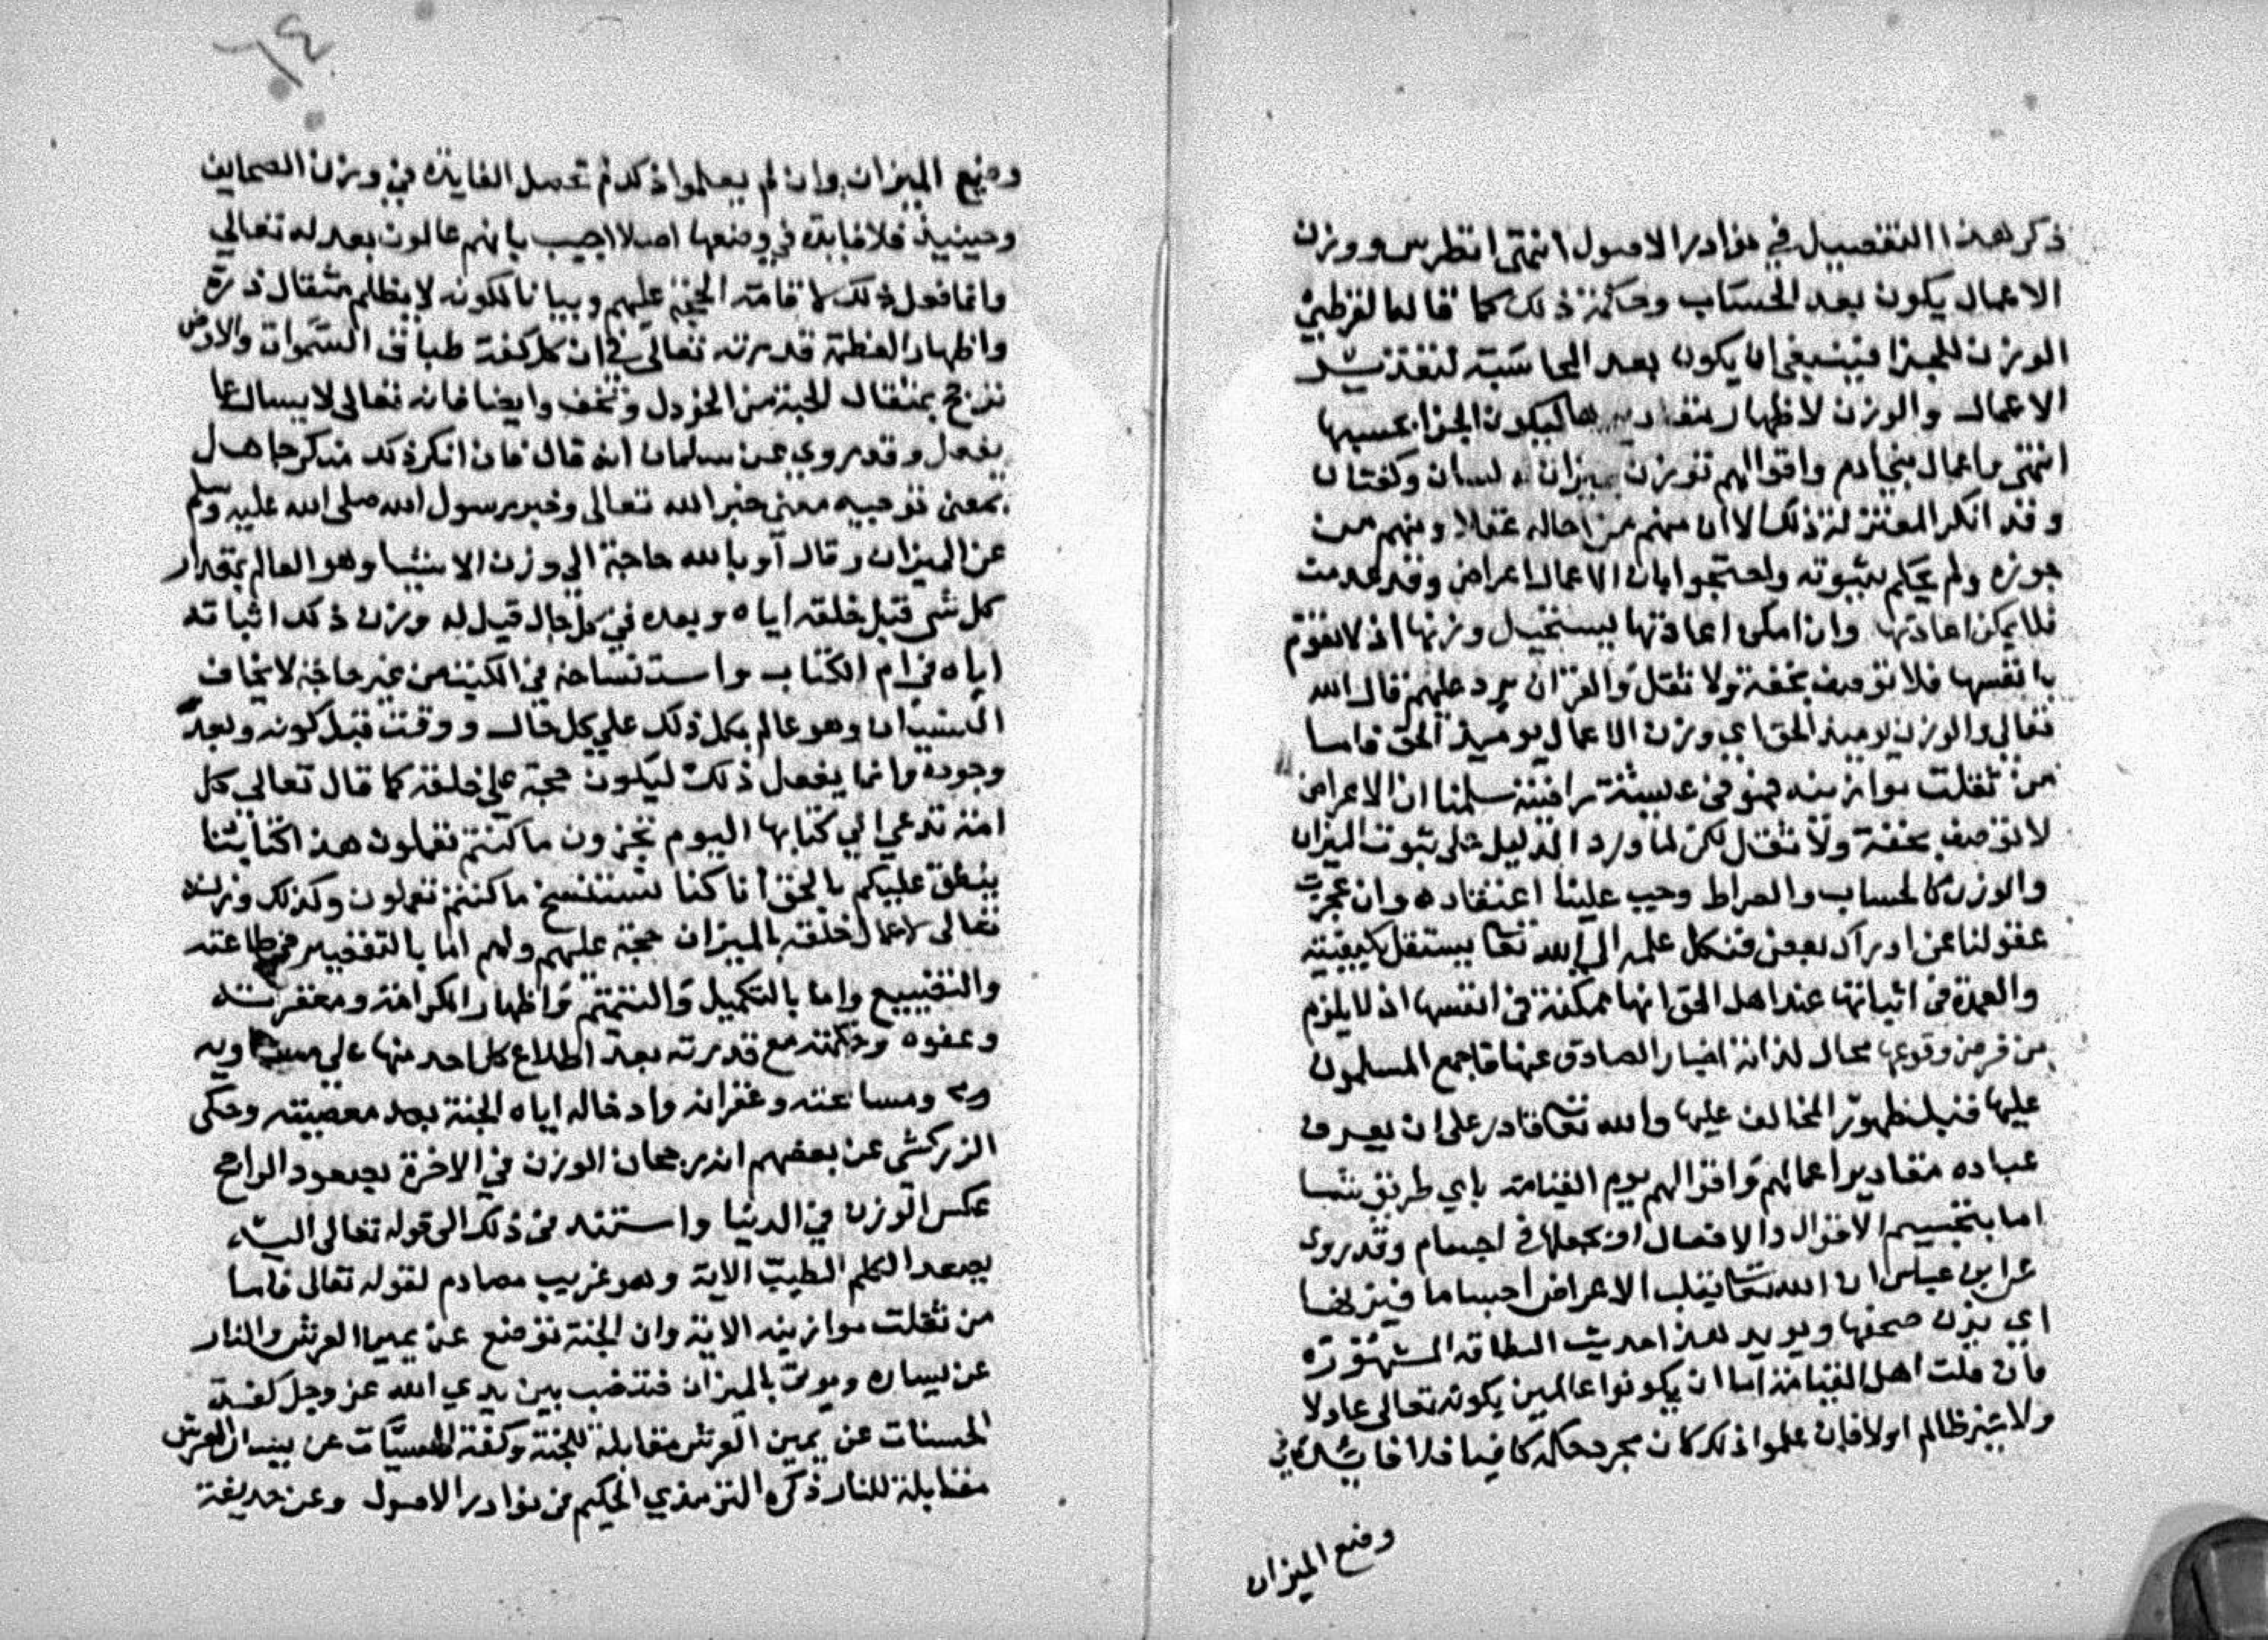 ذكر هذا التفصيل في نوادر الاصول انتهى انظر س ووزن
الاعمال يكون بعد الحساب وحكمة ذلك كما قال القرطبي
الوزن للجزا فينبغي ان يكون بعد المحاسبة
الاعمال والوزن لاظهار مقاديرها ليكون الجزا بحسبها
انتهى واعمال بني ادم واقوالهم توزن بميزان له لسان وكفتان
وقد انكر المعتزلة ذلك الا ان منهم من احاله عقلا ومنهم من
جوزه ولم يحكم بثبوته واحتجوا بان الاعمال اعراض وقد عدمت
فلا يمكن اعادتها وان امكن اعادتها يستحيل وزنها اذ لا تقوم
بانفسها فلا توصف بخفة ولا ثقل والقران يرد عليهم قال الله
تعالى والوزن يوميذ الحق اي وزن الاعمال يوميذ الحق فاما
من ثقلت موازينه فهو في عيشة راضية سلمنا ان الاعراض
لا توصف بخفة ولا ثقل لكن لما ورد الدليل على ثبوت الميزان
والوزن كالحساب والصراط وجب علينا اعتقاده وان عجزت
عقولنا عن ادراك بعض فنكل علمه الى الله تعا بكيفيته
والعمدة في اثباتها عند اهل الحق انها ممكنة في انفسها اذ لا يلزم
من فرض وقوعها محال لذاته اخبار الصادق عنها فاجمع المسلمون
عليها قبل ظهور المخالف عليها والله تعا قادر على ان يعرف
عباده مقادير اعمالهم واقوالهم يوم القيامة باي طريق شا
اما بتجسيم الاقوال والافعال او بجعلها في اجسام وقد روى
عن ابن عباس ان الله تعا يقلب الاعراض اجساما فيزنها
اي يزن صحفها ويويد هذا حديث البطاقة المشهورة
فان قلت اهل القيامة اما ان يكونوا عالمين بكونه تعالى عادلا
ولا غير ظالم اولا فان علموا ذلك كان مجرد حكمه كافيا فلا فايدة في
وضع الميزان
٦٤
وضع الميزان وان لم يعلموا ذكك لم تحصل الفايدة في وزن الصحايف
وحينيذ فلا فايدة في وضعها اصلا اجيب بانهم عالمون بعدله تعالي
وانما فعل ذلك لاقامة الحجة عليهم وبيانا لكونه لا يظلم مثقال ذرة
واظهارا لعظمة قدرته تعالى في ان كل كفة طباق السموات والارض
ترجح بمثقال الحبة من الخردل وتخف وايضا فانه تعالى لا يسال عما
يفعل وقد روي عن سلمان انه قال فان انكر ذكك منكر جاهل
بمعنى توجيه معنى خبر الله تعالى وخبر رسول الله صلى الله عليه وسلم
عن الميزان وقال او بالله حاجة الي وزن الاشيا وهو العالم بمقدار
كل شي قبل خلقه اياه وبعده في كل حال قيل له وزن ذكك اثباته
اياه في ام الكتاب واستنساخه في الكتب من غير حاجة لا يخاف
النسيان وهو عالم بكل ذلك علي كل حال ووقت قبل كونه وبعد
وجوده وانما يفعل ذلك ليكون حجة على خلقه كما قال تعالي كل
امة تدعي الي كتابها اليوم تجزون ما كنتم تعملون هذا كتابنا
ينطق عليكم بالحق انا كنا نستنسخ ما كنتم تعملون وكذلك وزنه
تعالى لاعمال خلقه بالميزان حجة عليهم ولهم اما بالتقصير في طاعته
والتضييع واما بالتكميل والتتميم واظهار الكرامة ومغفرته
وعفوه وحكمته مع قدرته بعد اطلاع كل احد منها على مساويه
ومسامحته وغفرانه وادخاله اياه الجنة بعد معصيته وحكى
الزركشي عن بعضهم ان رجحان الوزن في الاخرة بصعود الراجح
عكس الوزن في الدنيا واستند في ذلك الى قوله تعالى اليه
يصعد الكلم الطيب الاية وهو غريب مصادم لقوله تعالى فاما
من ثقلت موازينه الاية وان الجنة توضع عن يمين العرش والنار
عن يساره ويوتى بالميزان فتنصب بين يدي الله عز وجل كفة
الحسنات عن يمين العرش مقابلة للجنة وكفة للسيئات عن يسار العرش
مقابلة للنار ذكره الترمذي الحكيم في نوادر الاصول وعن حذيفة